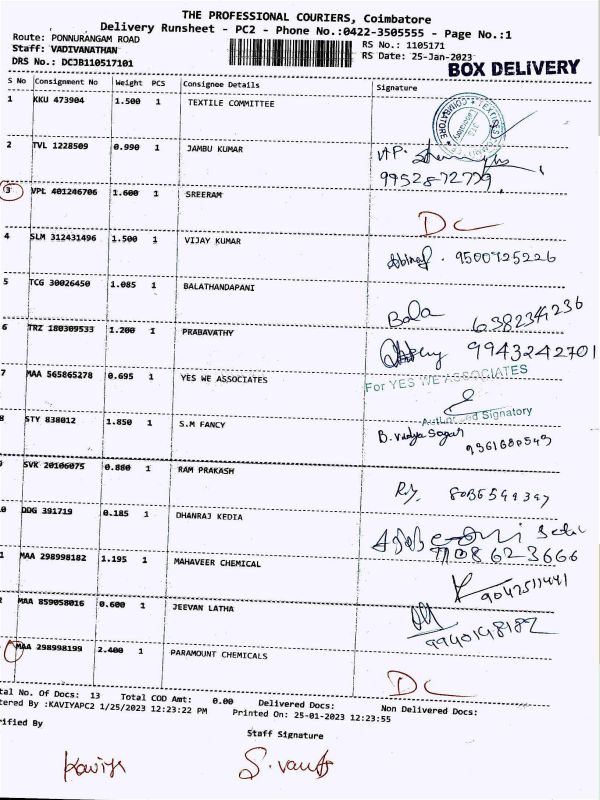 THE PROFESSIONAL COURIERS, Coimbatore
Delivery Runsheet - PC2 - Phone No.:0422-3505555 - Page No.:1
Route: PONNURANGAM ROAD
Staff: VADIVANATHAN
RS No.: 1105171
DRS No.: DCJB110517101
RS Date: 25-Jan-2023
BOX DELIVERY
S No Consignment No Weight PCS Consignee Details Signature
1 KKU 473904 1.500 1 TEXTILE COMMITTEE
COIMBATORE
2 TVL 1228509 0.990 1 JAMBU KUMAR
99528-72779
3 VPL 401246706 1.600 1 SREERAM DC
4 SLM 312431496 1.500 1 VIJAY KUMAR 9500725226
5 TCG 30026450 1.085 1 BALATHANDAPANI Bala
6 TRZ 180309533 1.200 1 PRABAVATHY 9943242701
7 MAA 565865278 0.695 1 YES WE ASSOCIATES For YES WE ASSOCIATES
Signatory
8 STY 838012 1.850 1 S.M FANCY B. Vidya Sagar
SVK 20106075 0.880 1 RAM PRAKASH
0 DDG 391719 0.185 1 DHANRAJ KEDIA
1 MAA 298998182 1.195 1 MAHAVEER CHEMICAL
MAA 859058016 0.600 1 JEEVAN LATHA
MAA 298998199 2.400 1 PARAMOUNT CHEMICALS DC
tal No. Of Docs: 13 Total COD Amt: 0.00 Delivered Docs: Non Delivered Docs:
tered By :KAVIYAPC2 1/25/2023 12:23:22 PM Printed On: 25-01-2023 12:23:55
rified By
Staff Signature
Kaviya